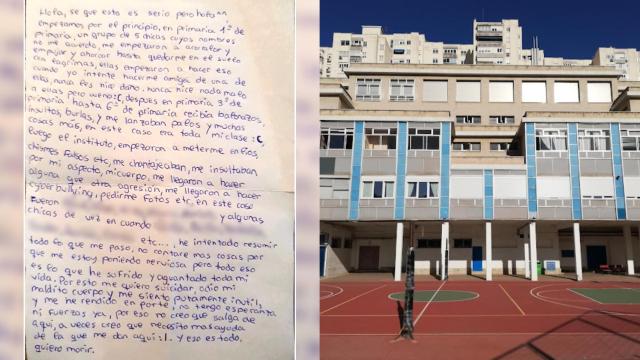 Hola, se que esto es serio pero hola ^^
empezamos por el principio, en primaria 1º de
primaria, un grupo de 5 chicas cuyos nombres
no me acuerdo, me empezaron a acorralar y
empujar y ahorcar hasta quedarme en el suelo
con lagrimas, ellas empezaron a hacer eso
cuando yo intente hacerme amiga de una de
ellas, nada les hice daño, nunca hice nada malo
a ellas pero weno :(, despues en primaria, 3º de
primaria hasta 6º de primaria recibia balonazos,
insultos, burlas, y me lanzaban palos y muchas
cosas más, en este caso era toda mi clase :(,
luego el instituto, empezaron a meterme en líos,
chismes falsos etc, me chantajeaban, me insultaban
por mi aspecto, mi cuerpo, me llegaron a hacer
alguna que otra agresión, me llegaron a hacer
cyberbullying, pedirme fotos etc. en este caso
fueron y algunas
chicas de vez en cuando
etc..., he intentado resumir
todo lo que me paso, no contare mas cosas por
que me estoy poniendo nerviosa pero todo eso
es lo que he sufrido y aguantado toda mi
vida. Por esto me quiero suicidar, odio mi
maldito cuerpo y me siento putamente inutil,
y me he rendido en parte, no tengo esperanza
ni fuerzas ya, por eso no creo que salga de
aqui, a veces creo que necesito mas ayuda
de la que me dan aqui :(. Y eso es todo.
quiero morir.